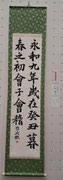 永和九年歳在癸丑暮
春之初會于會稽